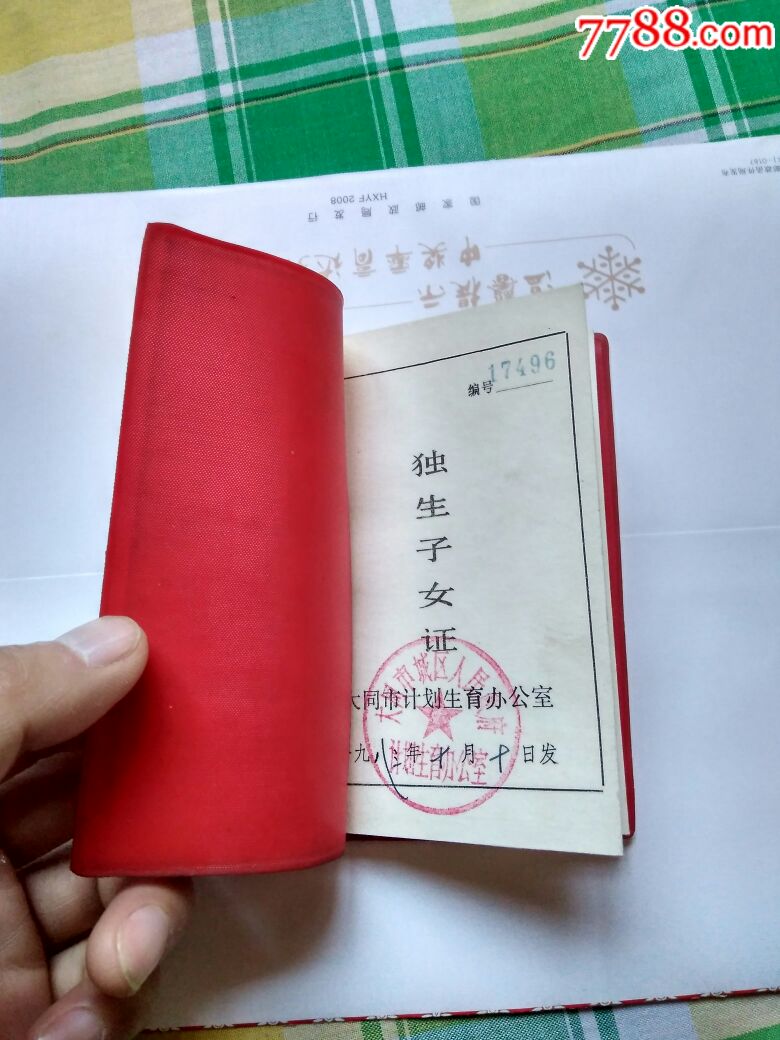 7788.com
国家邮政局发行
HXYF 2008
温馨提示
中奖率高达
编号 17496
独生子女证
大同市计划生育办公室
大同市城区人民政府
计划生育办公室
年 月 十日发